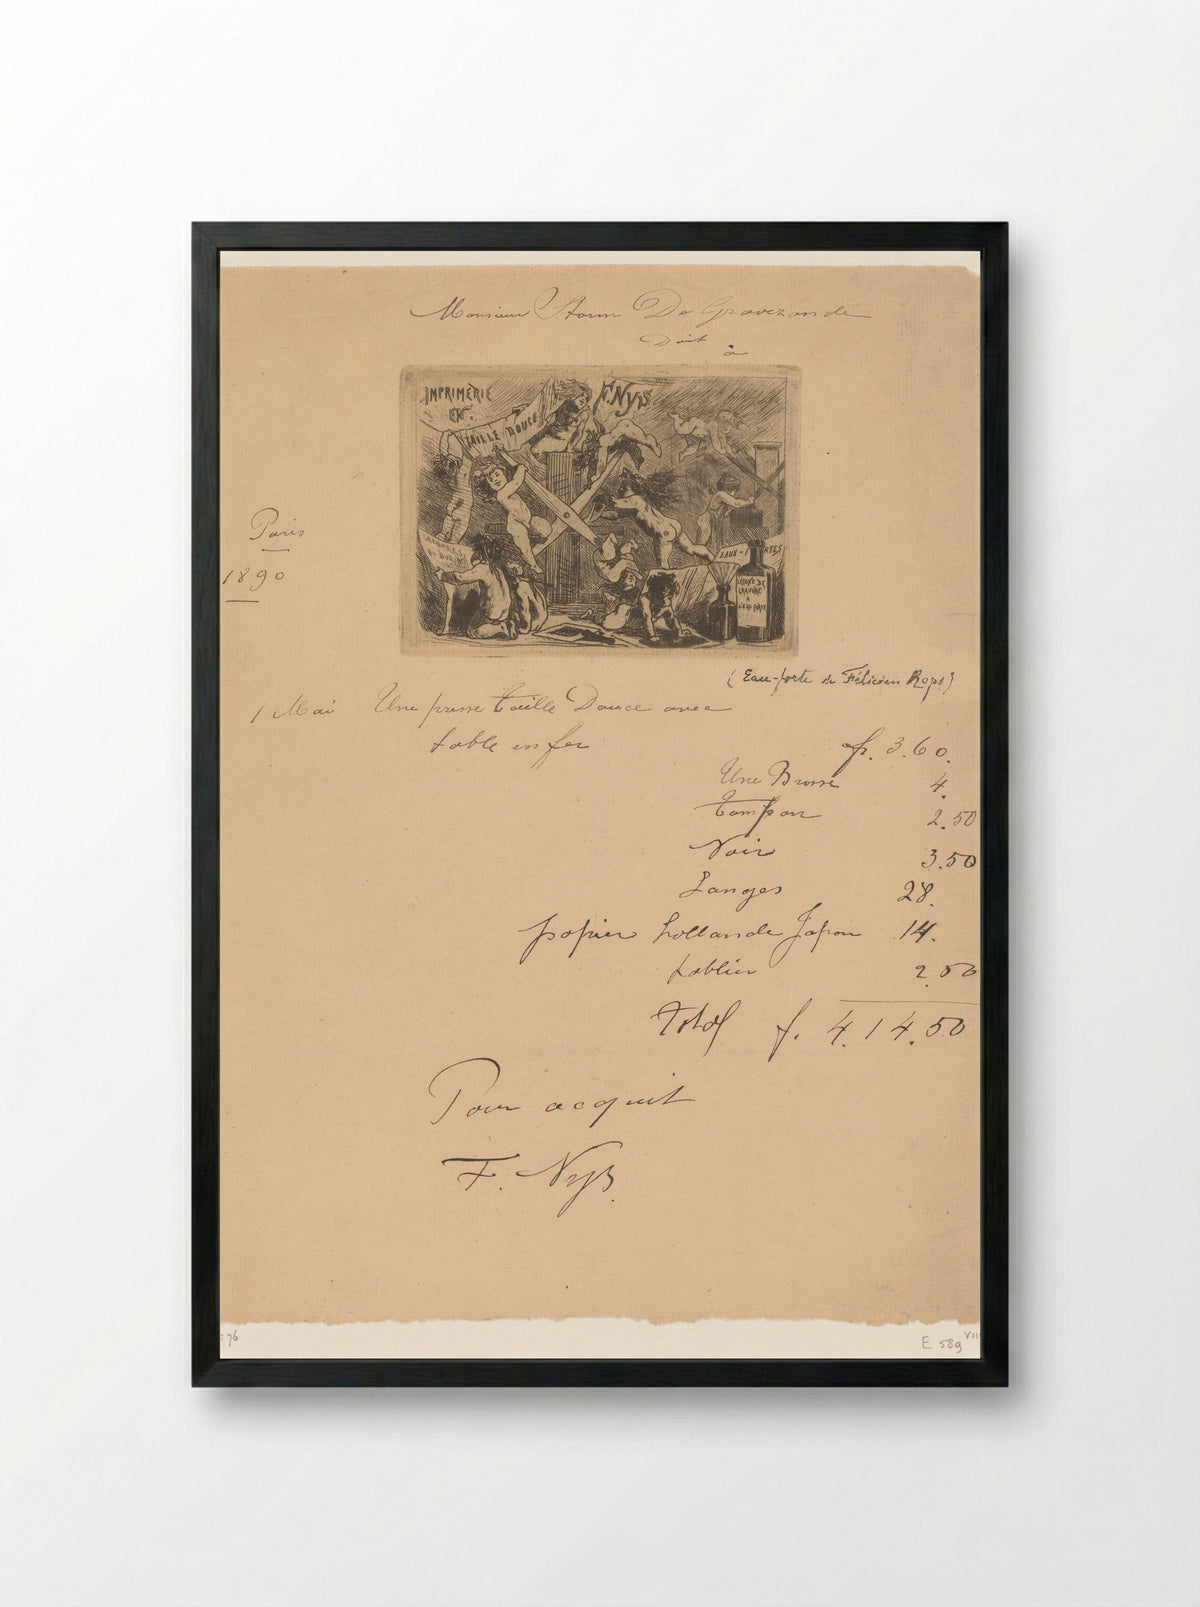 Monsieur Storm De Gravezande
Doit
à
IMPRIMERIE
EN
TAILLE DOUCE
F. Nys
Paris
1890
EAUX-FORTES
LEÇONS DE
GRAVURE
A
L'EAU FORTE
(Eau-forte de Félicien Rops)
1 Mai Une presse taille Douce avec
table en fer fr. 360.
Une Brosse 4.
Tampon 2.50
Noir 3.50
Langes 28.
papier hollande Japon 14.
tablier 2.50
Total f. 414.50
Pour acquit
F. Nys.
: 76
E 589 VII